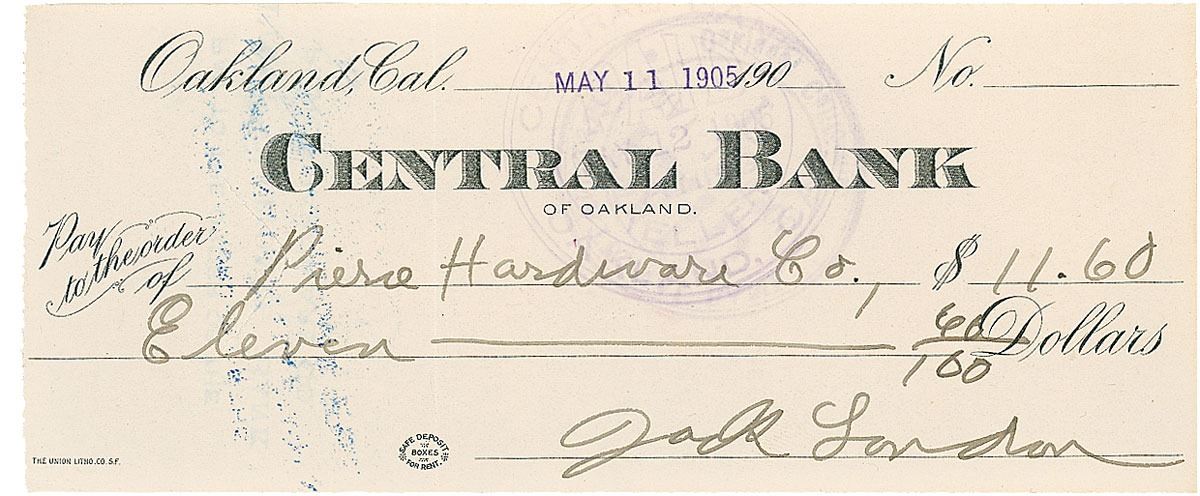 Oakland, Cal. MAY 11 1905 190 No.
CENTRAL BANK
OF OAKLAND.
Pay to the order of Pierce Hardware Co., $ 11.60
Eleven 60/100 Dollars
Jack London
SAFE DEPOSIT BOXES FOR RENT.
THE UNION LITHO. CO. S.F.